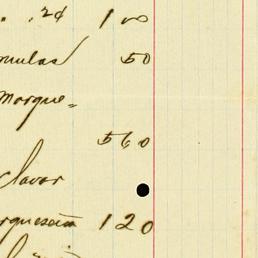 . . 24 1 00
mulas 50
Marque=
5 60
clavar
rquesein 1 20